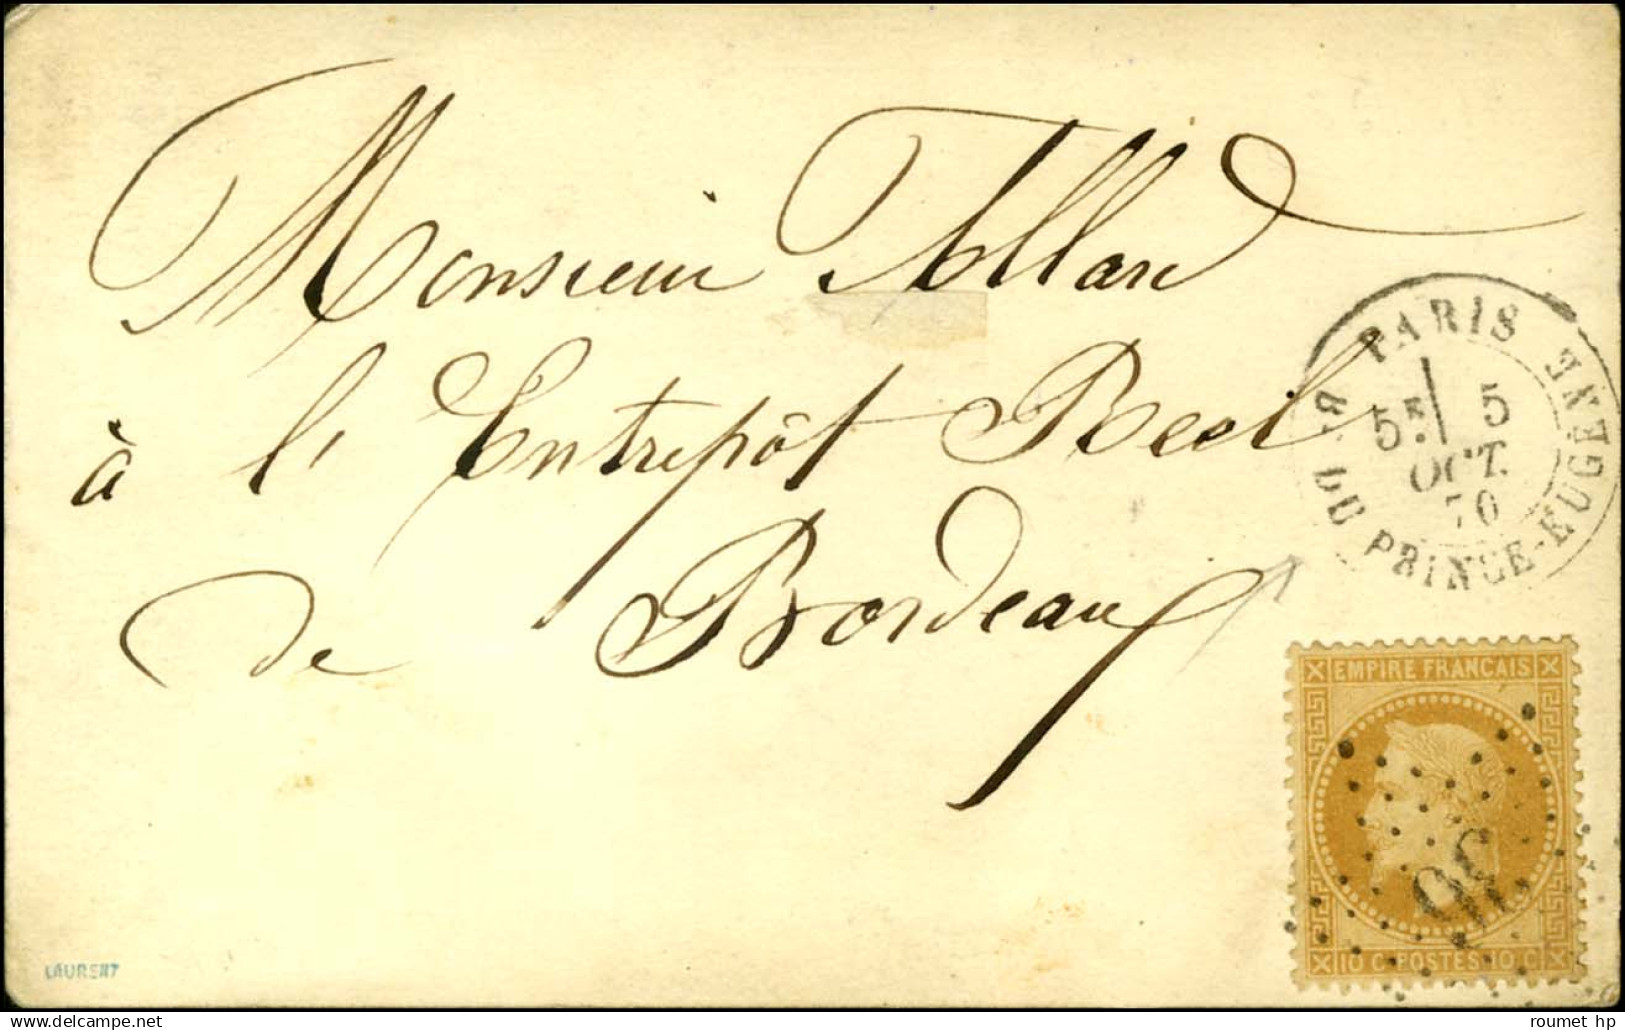 Monsieur Tollard
à l'Entrepôt Réel
de Bordeaux
PARIS
5E 5
OCT.
70
R. DU PRINCE-EUGÈNE
EMPIRE FRANCAIS
10 C POSTES 10 C
LAURENT
www.delcampe.net
roumet hp